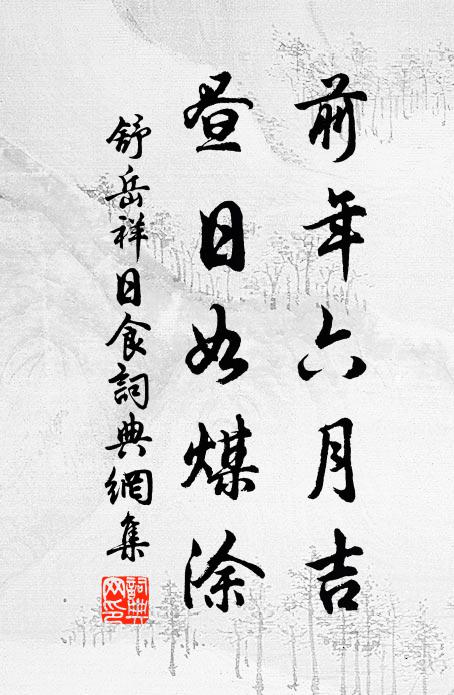 前年六月吉
昼日如煤涂
舒岳祥日食詞典網集
詞典